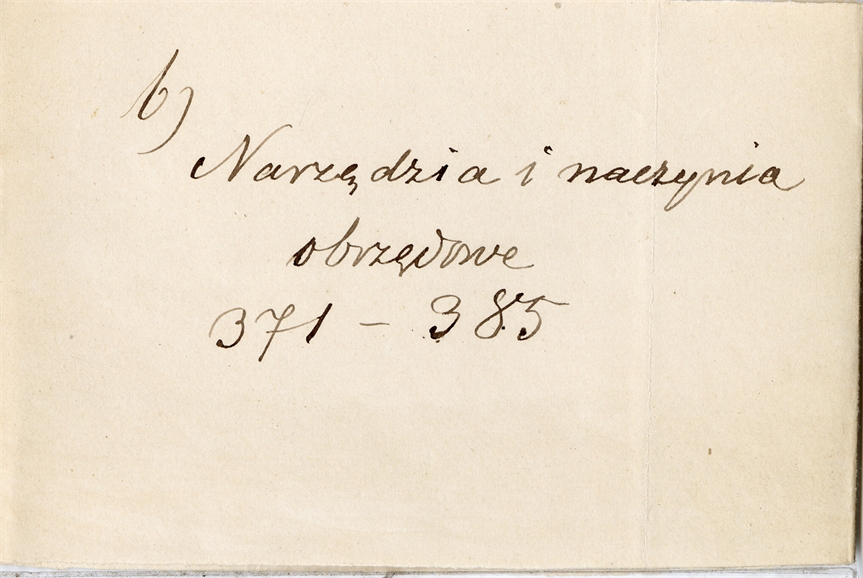 b)
Narzędzia i naczynia
obrzędowe
371 – 385